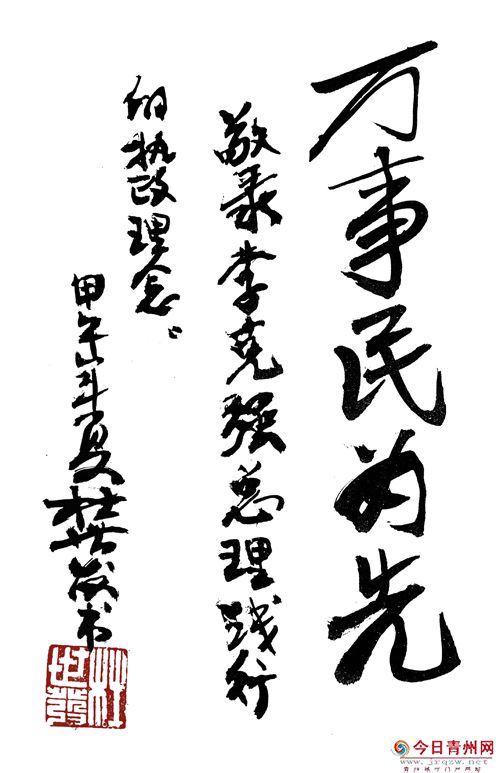 万事民为先
敬录李克强总理践行
的执政理念
甲午年夏杜世发书
杜世發
今日青州网
www.jrqzw.net